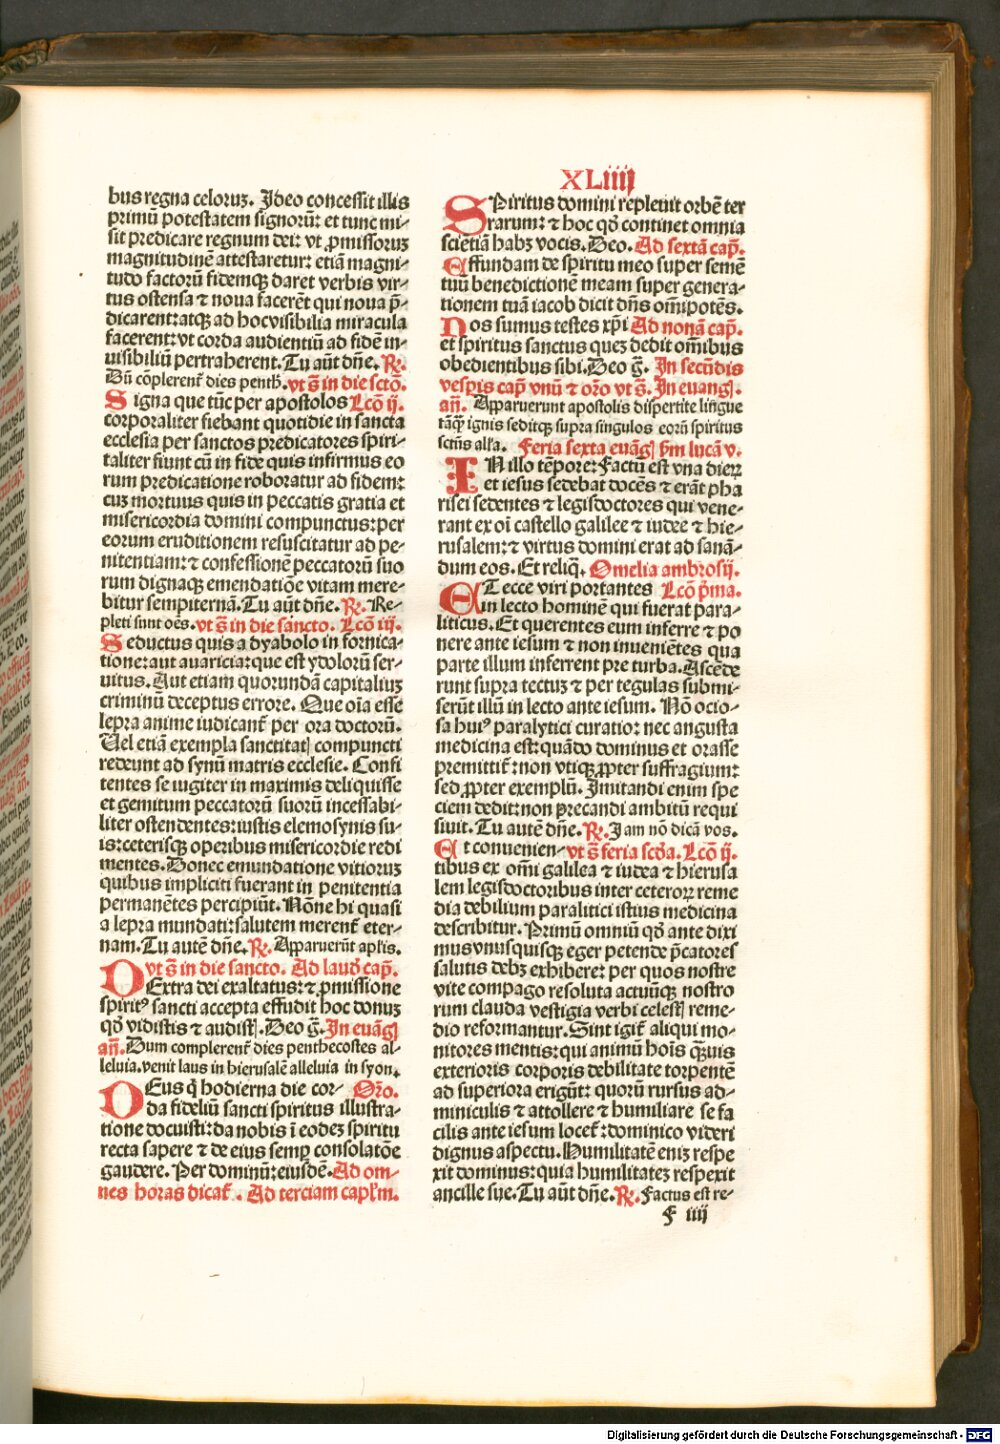 XLiiij
bus regna celoruꝫ. Ideo concessit illis
primū potestatem signorū: et tunc mi⸗
sit predicare regnum dei: vt ꝓmissoruꝫ
magnitudinē attestaretur: etiā magni⸗
tudo factorū fidemqꝫ daret verbis vir⸗
tus ostensa ⁊ noua facerēt qui noua p̄⸗
dicarent: atqꝫ ad hoc visibilia miracula
facerent: vt corda audientiū ad fidē in⸗
uisibiliū pertraherent. Tu aūt dn̄e. ℟.
Dū cōplerent᷑ dies penth̄. vt s̄ in die sctō.
Signa que tūc per apostolos Lcō ij.
corporaliter fiebant quotidie in sancta
ecclesia per sanctos predicatores spiri⸗
taliter fiunt cū in fide quis infirmus eo
rum predicatione roboratur ad fidem:
cuꝫ mortuus quis in peccatis gratia et
misericordia domini compunctus: per
eorum eruditionem resuscitatur ad pe⸗
nitentiam: ⁊ confessionē peccatorū suo
rum dignaqꝫ emendatiōe vitam mere⸗
bitur sempiternā. Tu aūt dn̄e. ℟. Re⸗
pleti sunt oēs. vt s̄ in die sancto. Lcō iij.
Seductus quis a dyabolo in fornica⸗
tione: aut auaricia: que est ydolorū ser⸗
uitus. Aut etiam quorundā capitaliuꝫ
criminū deceptus errore. Que oīa esse
lepra anime iudicant᷑ per ora doctorū.
Uel etiā exempla sanctitatꝭ compuncti
redeunt ad synū matris ecclesie. Confi
tentes se iugiter in maximis deliquisse
et gemitum peccatorū suorū incessabi⸗
liter ostendentes: iustis elemosynis su⸗
is: ceterisqꝫ operibus misericordie redi
mentes. Donec emundatione vitiorum
quibus impliciti fuerant in penitentia
permanētes percipiūt. Nōne hi quasi
a lepra mundati: salutem merent᷑ eter⸗
nam. Tu autē dn̄e. ℟. Apparuerūt apl̄is.
vt s̄ in die sancto. Ad laud̄ cap̄.
DExtra dei exaltatus: ⁊ ꝓmissione
spiritꝰ sancti accepta effudit hoc donuꝫ
qd̄ vidistis ⁊ audistꝭ. Deo gr̄. In euāgꝭ
an̄. Dum complerent᷑ dies penthecostes al⸗
leluia. venit laus in hierusalē alleluia in syon.
DEus q̄ hodierna die cor⸗ Or̄o.
da fideliū sancti spiritus illustra⸗
tione docuisti: da nobis ī eodeꝫ spiritu
recta sapere ⁊ de eius semꝑ consolatōe
gaudere. Per dominū: eiusdē. Ad om⸗
nes horas dicat᷑. Ad terciam capl̄m.
SPiritus domini repleuit orbē ter
rarum: ⁊ hoc qd̄ continet omnia
sciētiā habꝫ vocis. Deo. Ad sextā cap̄.
Effundam de spiritu meo super semē
tuū benedictionē meam super genera⸗
tionem tuā iacob dicit dn̄s om̄ipotēs.
Nos sumus testes xp̄i Ad nonā cap̄.
et spiritus sanctus queꝫ dedit om̄ibus
obedientibus sibi. Deo gr̄. In secūdis
vesꝑis cap̄ vnū ⁊ or̄o vt s̄. In euangꝭ.
an̄. Apparuerunt apostolis dispertite lingue
tāqꝫ ignis seditqꝫ supra singulos eorū spiritus
sctūs alla. Feria sexta euāgꝭ sm̄ lucā v.
IN illo tēpore: Factū est vna dierꝝ
et iesus sedebat docēs ⁊ erāt pha
risei sedentes ⁊ legisdoctores qui vene⸗
rant ex oī castello galilee ⁊ iudee ⁊ hie⸗
rusalem: ⁊ virtus domini erat ad sanā⸗
dum eos. Et reliq̄. Omelia ambrosij.
ET ecce viri portantes Lcō p̄ma.
in lecto hominē qui fuerat para⸗
liticus. Et querentes eum inferre ⁊ po
nere ante iesum ⁊ non inueniētes qua
parte illum inferrent pre turba. Ascēde
runt supra tectuꝫ ⁊ per tegulas submi⸗
serūt illū in lecto ante iesum. Nō ocio⸗
sa huiꝰ paralytici curatio: nec angusta
medicina est: quādo dominus et orasse
premittit᷑: non vtiqꝫ ꝓpter suffragium:
sed ꝓpter exemplū. Imitandi enim spe
ciem dedit: non p̄recandi ambitū requi
siuit. Tu autē dn̄e. ℟. Iam nō dicā vos.
Et conuenien⸗ vt s̄ feria scd̄a. Lcō ij.
tibus ex om̄i galilea ⁊ iudea ⁊ hierusa
lem legisdoctoribus inter ceterorꝝ reme
dia debilium paralitici istius medicina
describitur. Primū omniū qd̄ ante dixi
mus vnusquisqꝫ eger petende p̄catores
salutis debꝫ exhibere: per quos nostre
vite compago resoluta actuūqꝫ nostro
rum clauda vestigia verbi celestꝭ reme⸗
dio reformantur. Sint igit᷑ aliqui mo⸗
nitores mentis: qui animū hoīs qꝫuis
exterioris corporis debilitate torpentē
ad superiora erigūt: quorū rursus ad⸗
miniculis ⁊ attollere ⁊ humiliare se fa
cilis ante iesum locet᷑: dominico videri
dignus aspectu. Humilitatē eniꝫ respe
xit dominus: quia humilitateꝫ respexit
ancille sue. Tu aūt dn̄e. ℟. Factus est re⸗
F iiij
Digitalisierung gefördert durch die Deutsche Forschungsgemeinschaft - DFG